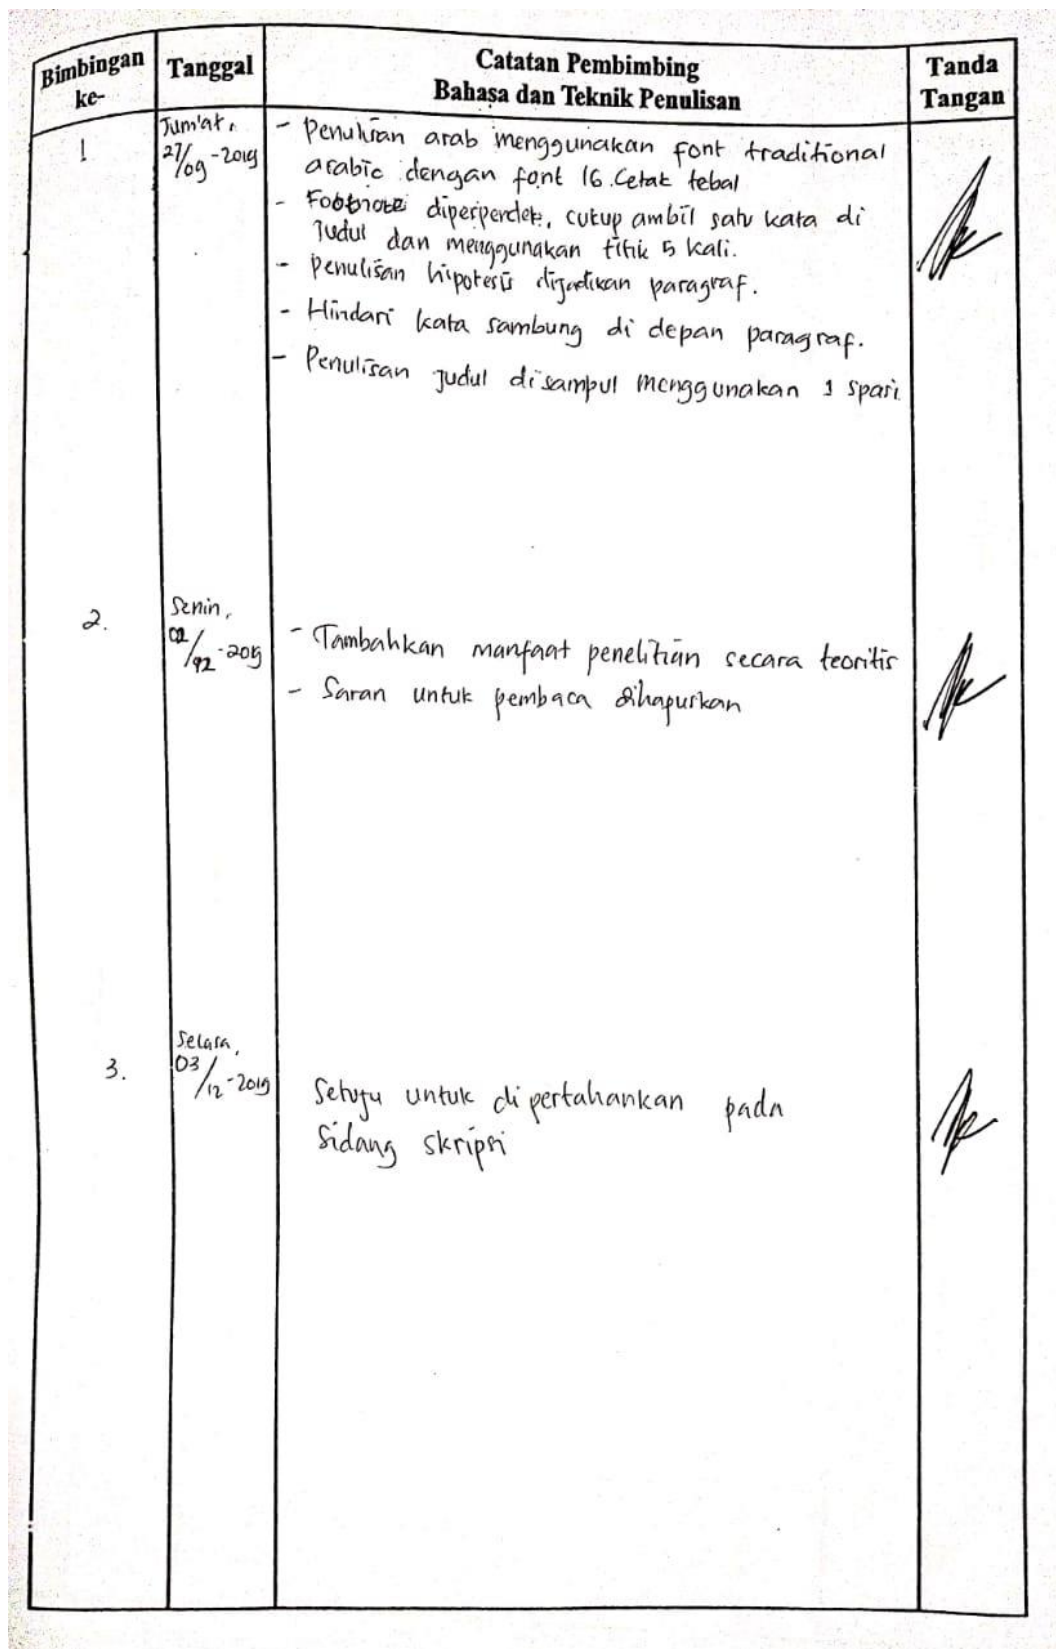 Bimbingan ke-
Tanggal
Catatan Pembimbing
Bahasa dan Teknik Penulisan
Tanda Tangan
1
Jum'at,
27/09-2019
- Penulisan arab menggunakan font traditional
arabic dengan font 16. Cetak tebal
- Footnote diperpendek, cukup ambil satu kata di
Judul dan menggunakan titik 5 kali.
- Penulisan hipotesis dijadikan paragraf.
- Hindari kata sambung di depan paragraf.
- Penulisan Judul disampul menggunakan 1 spasi
2.
Senin,
02/12-2019
- Tambahkan manfaat penelitian secara teoritis
- Saran untuk pembaca dihapuskan
3.
Selasa,
03/12-2019
Setuju untuk dipertahankan pada
Sidang skripsi